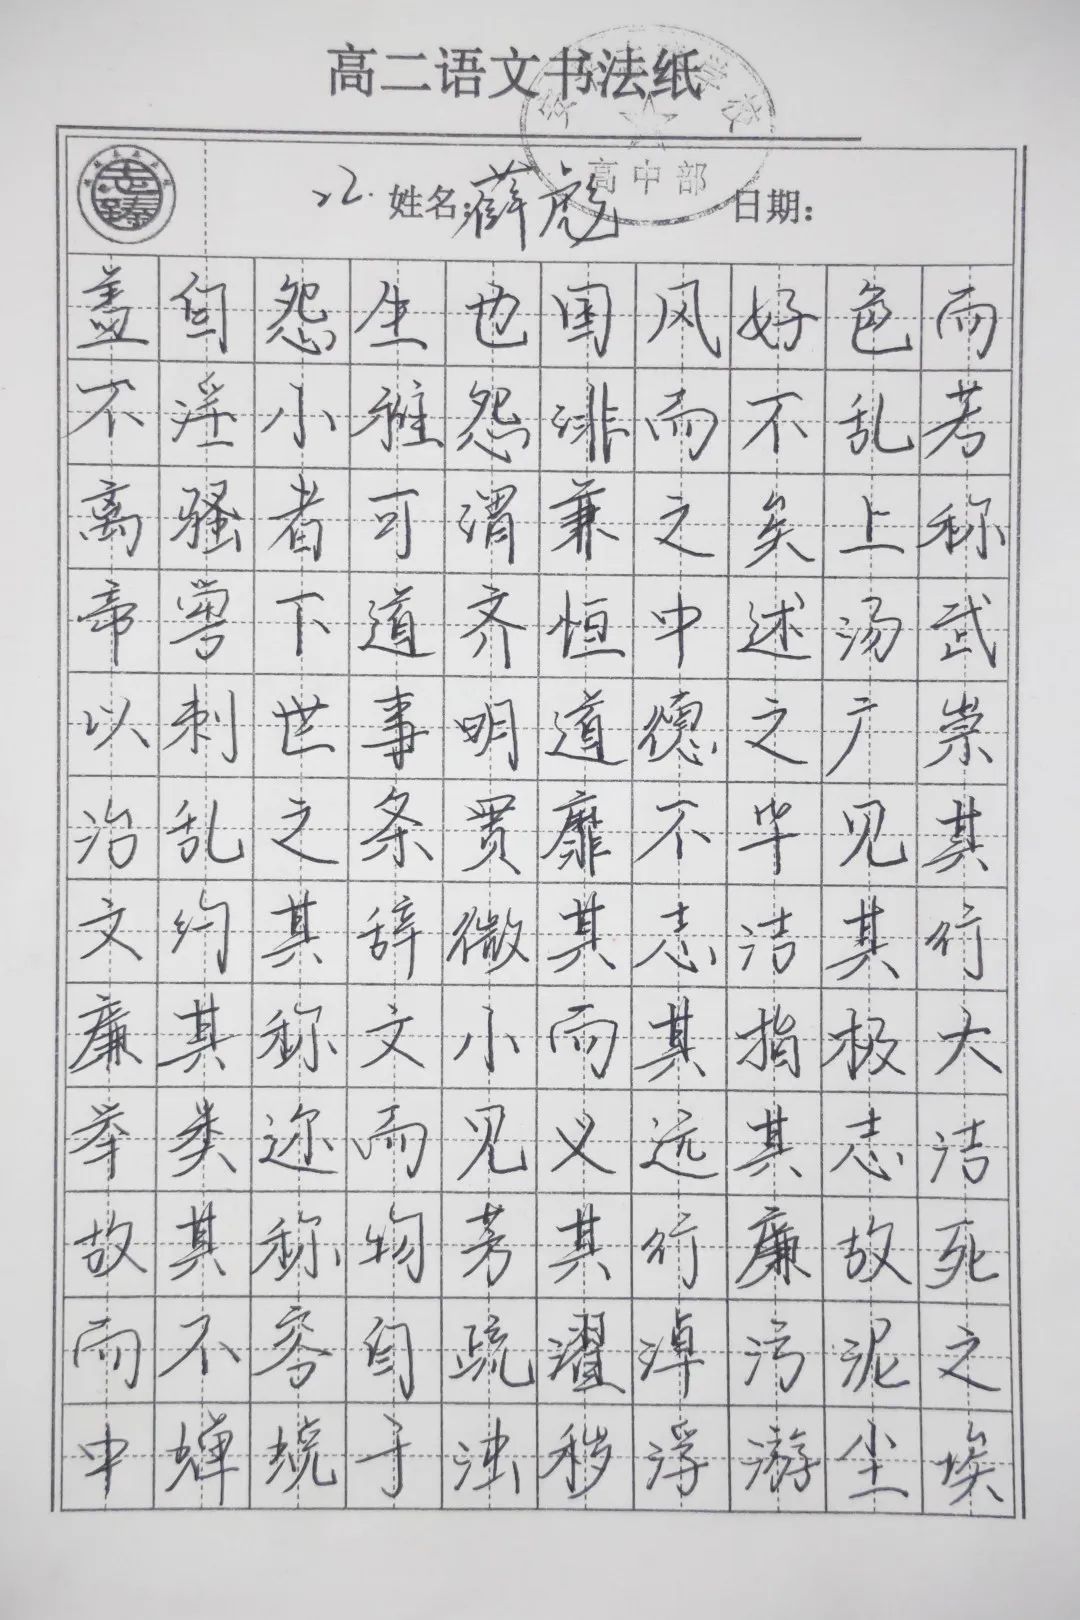 高二语文书法纸
高中部
22. 姓名:薛彪 日期:
盖自怨生也国风好色而
不淫小雅怨诽而不乱若
离骚者可谓兼之矣上称
帝喾下道齐桓中述汤武
以刺世事明道德之广崇
治乱之条贯靡不毕见其
文约其辞微其志洁其行
廉其称文小而其指极大
举类迩而见义远其志洁
故其称物芳其行廉故死
而不容自疏濯淖污泥之
中蝉蜕于浊秽浮游尘埃